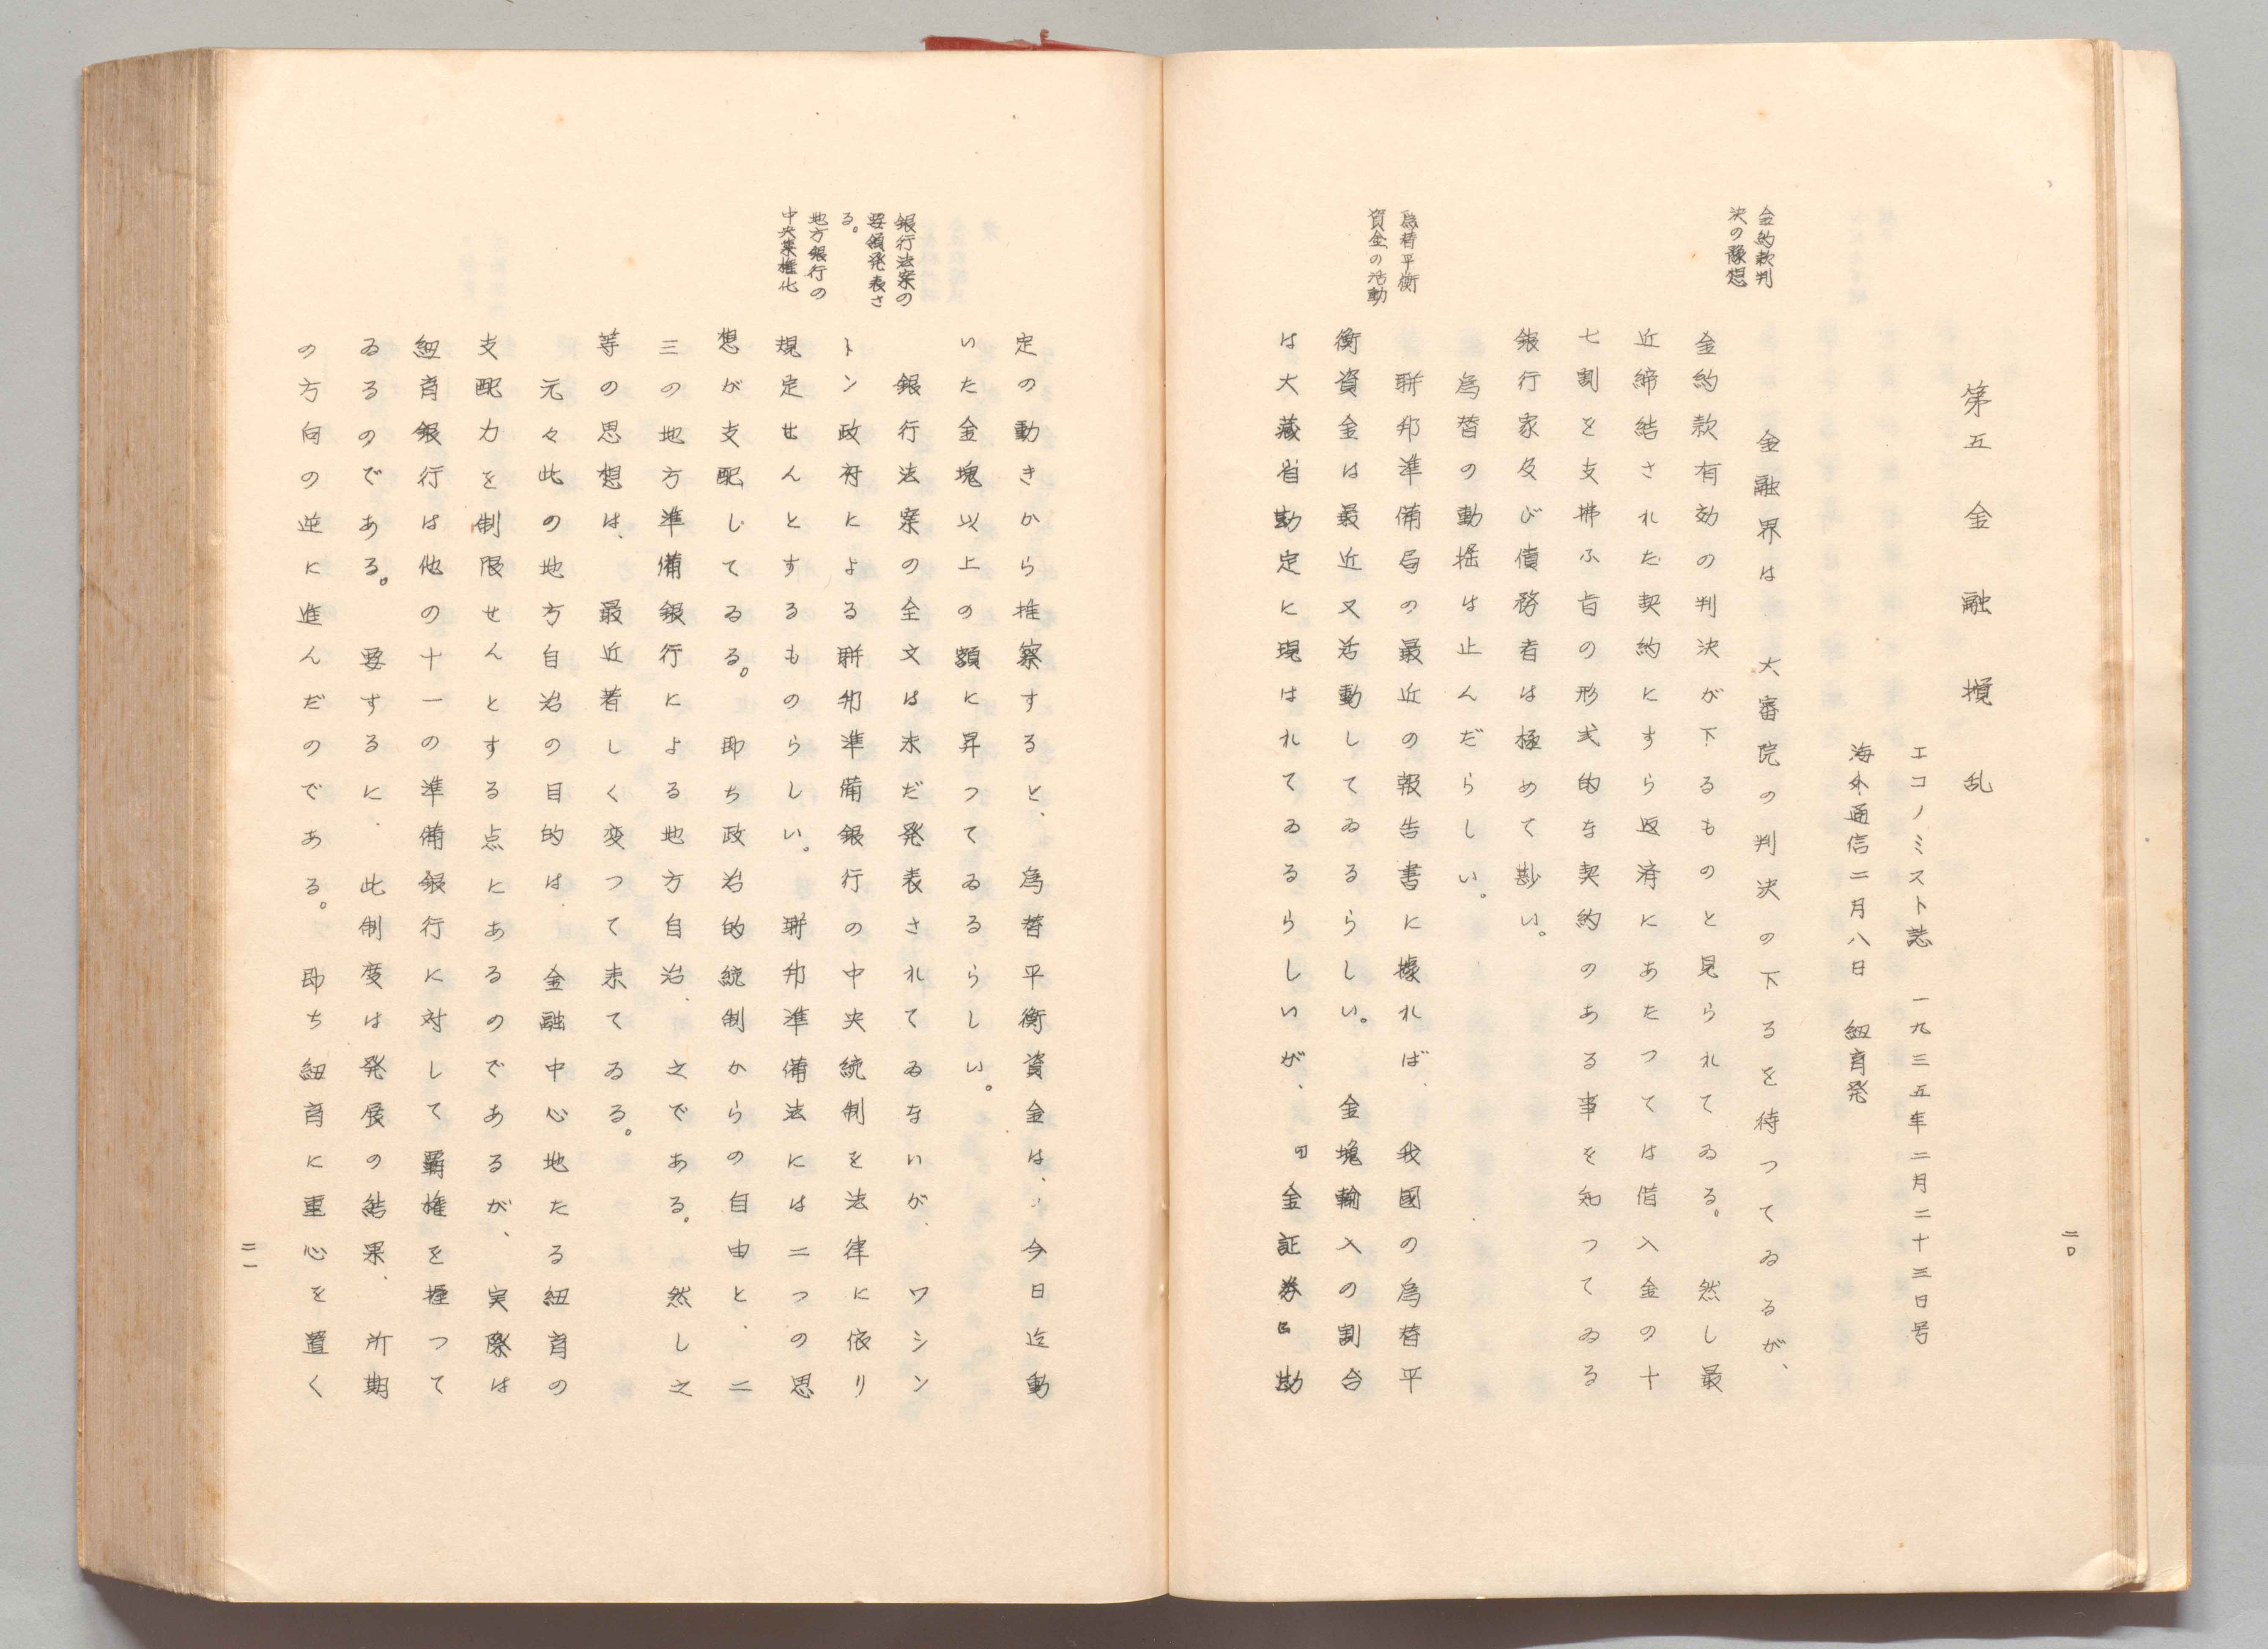 第五　金融攪乱
エコノミスト誌　一九三五年二月二十三日号
海外通信二月八日　紐育発
金約款判
決の豫想
金融界は、大審院の判決の下るを待つてゐるが、
金約款有効の判決が下るものと見られてゐる。然し最
近締結された契約にすら返済にあたつては借入金の十
七割を支拂ふ旨の形式的な契約のある事を知つてゐる
銀行家及び債務者は極めて尠い。
為替の動揺は止んだらしい。
為替平衡
資金の活動
聯邦準備局の最近の報告書に據れば、我國の為替平
衡資金は最近又活動してゐるらしい。金塊輸入の割合
は大藏省勘定に現はれてゐるらしいが、『金証券』勘
二〇
定の動きから推察すると、為替平衡資金は、今日迄動
いた金塊以上の額に昇つてゐるらしい。
銀行法案の
要領発表さ
る。
地方銀行の
中央集権化
銀行法案の全文は未だ発表されてゐないが、ワシン
トン政府による聯邦準備銀行の中央統制を法律に依り
規定せんとするものらしい。聯邦準備法には二つの思
想が支配してゐる。即ち政治的統制からの自由と、二
三の地方準備銀行による地方自治、之である。然し之
等の思想は、最近著しく変つて来てゐる。
元々此の地方自治の目的は、金融中心地たる紐育の
支配力を制限せんとする点にあるのであるが、実際は
紐育銀行は他の十一の準備銀行に対して覇権を握つて
ゐるのである。要するに、此制度は発展の結果、所期
の方向の逆に進んだのである。即ち紐育に重心を置く
二一